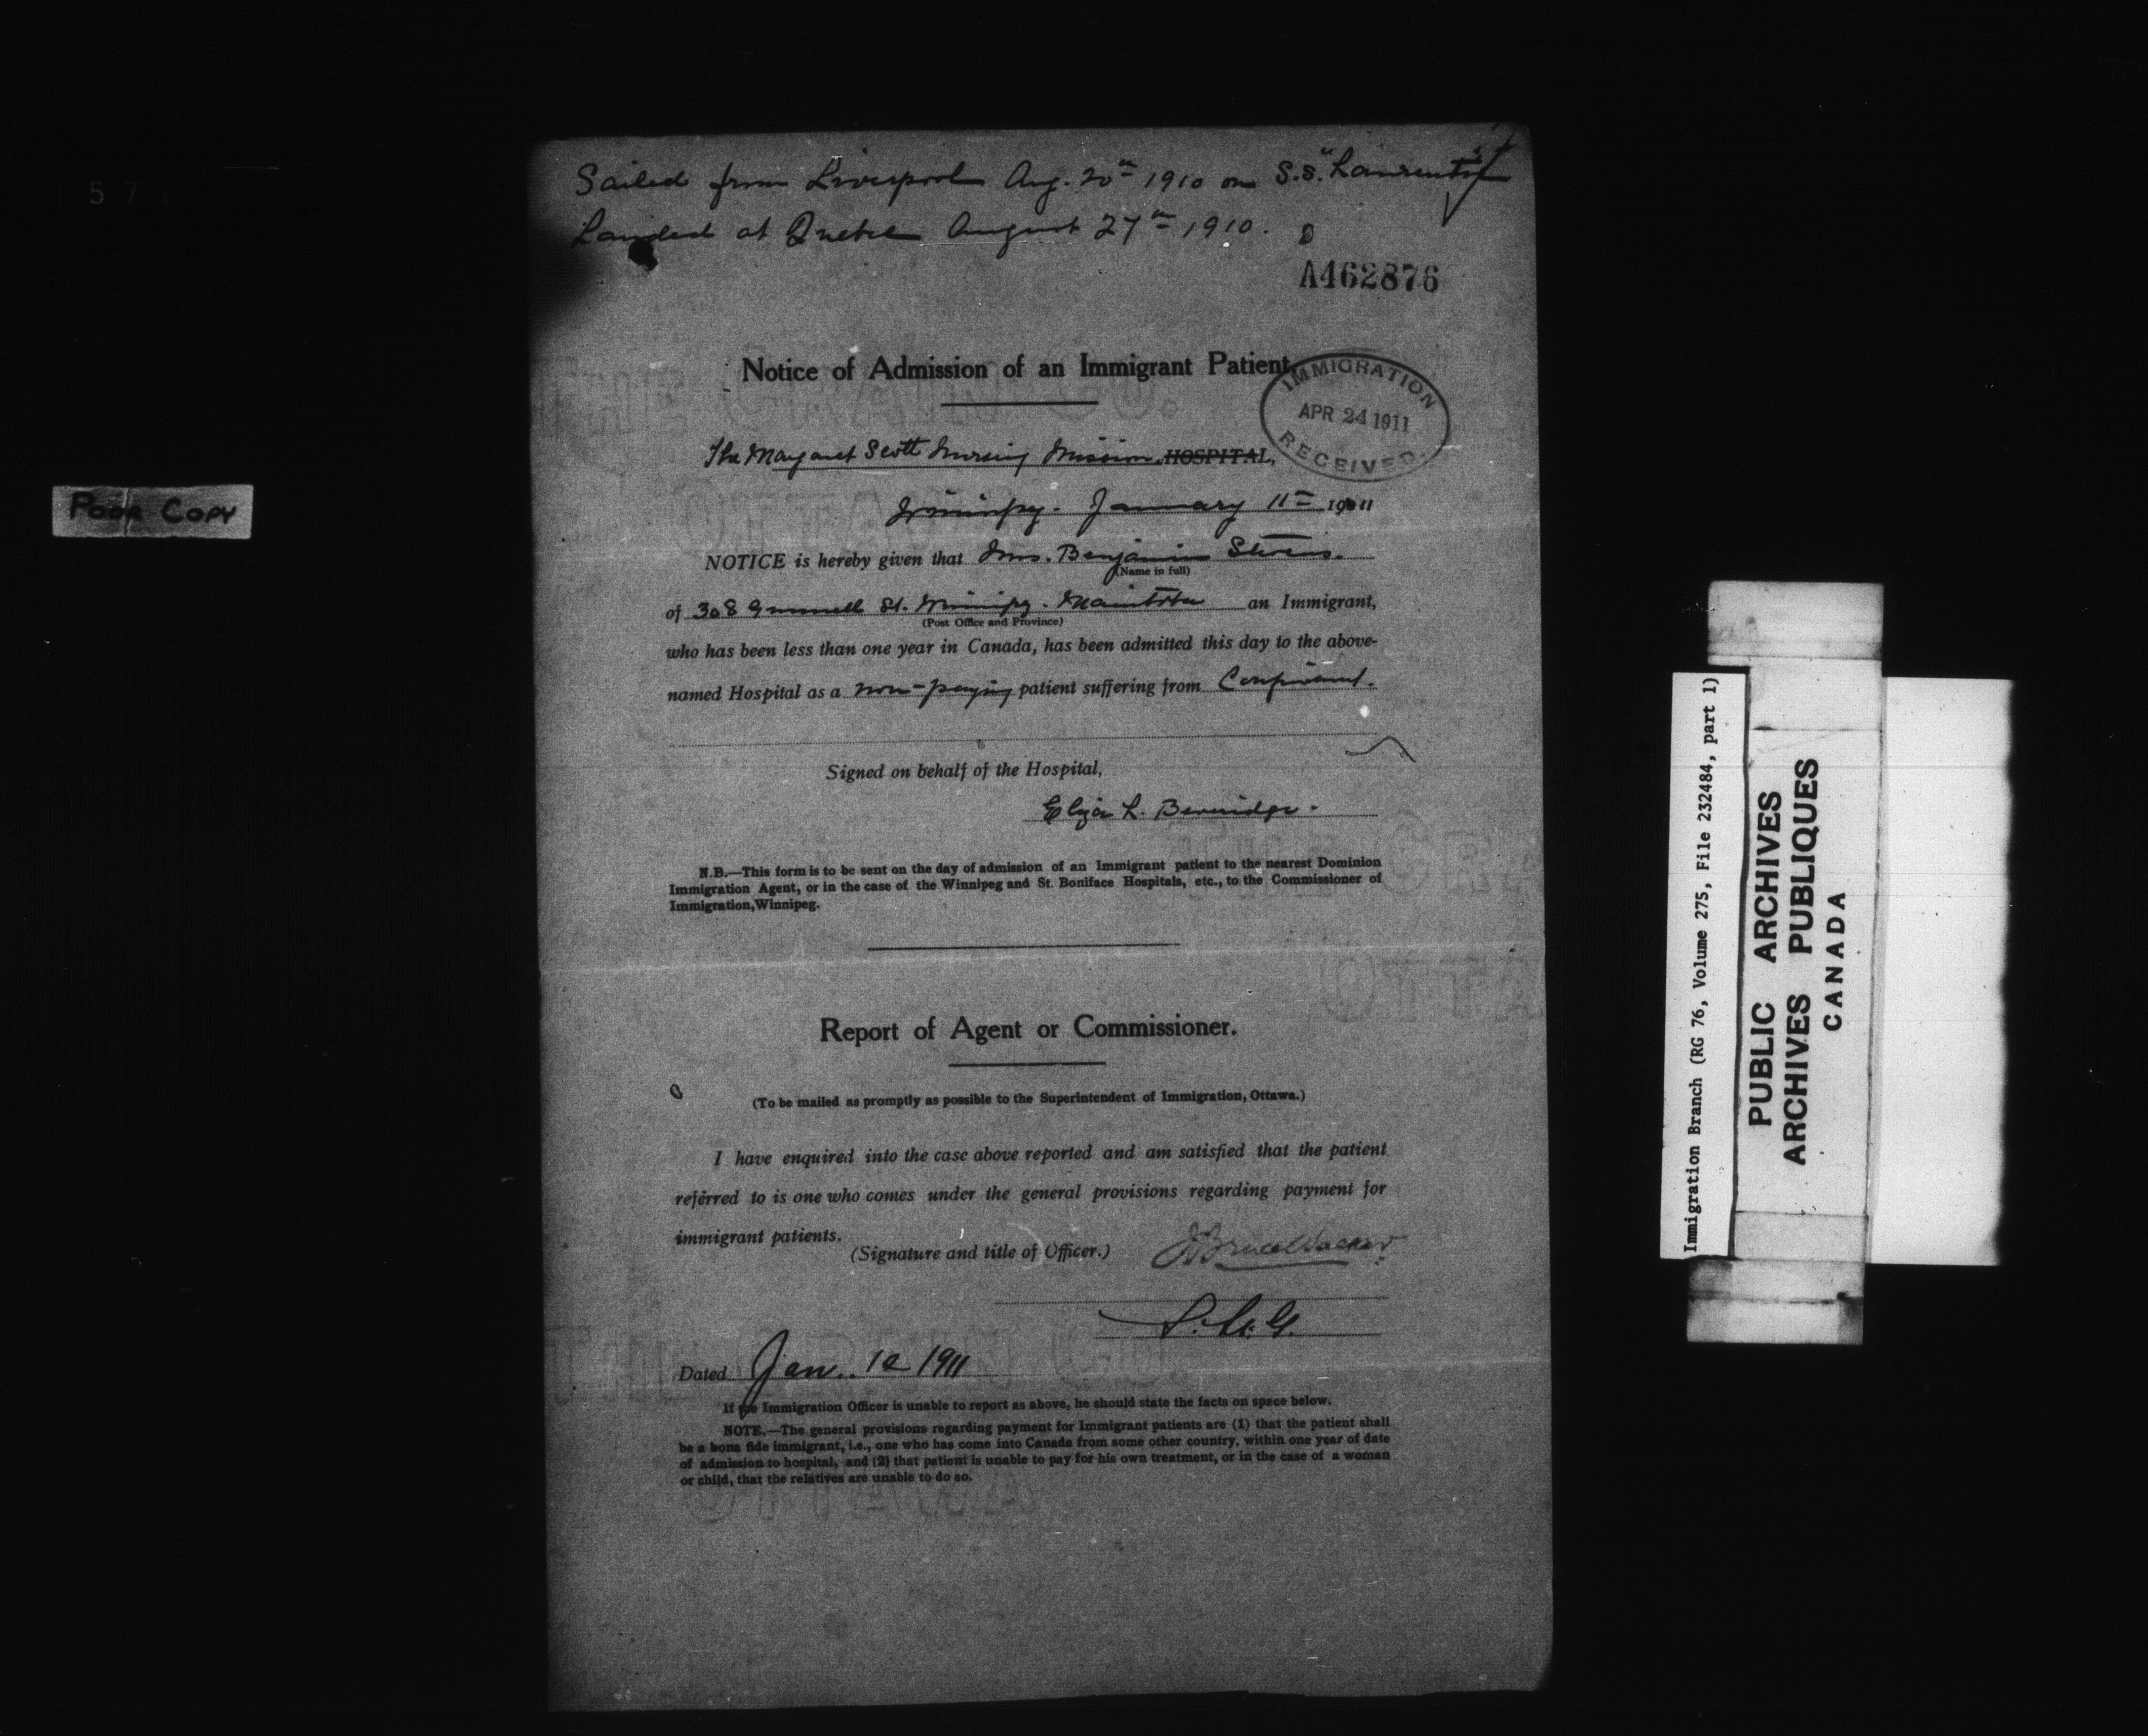 Sailed from Liverpool Aug. 20th 1910 on S.S. "Laurentic"
Landed at Quebec August 27th 1910.
A462876
Notice of Admission of an Immigrant Patient.
IMMIGRATION
APR 24 1911
RECEIVED
The Margaret Scott Nursing Mission HOSPITAL,
Winnipeg. January 11th 1911
NOTICE is hereby given that Mrs. Benjamin Stevens.
(Name in full)
of 308 St. Winnipeg. Manitoba an Immigrant,
(Post Office and Province)
who has been less than one year in Canada, has been admitted this day to the above-
named Hospital as a non-paying patient suffering from Confinement.
Signed on behalf of the Hospital,
Eliza L. Beveridge.
N.B.—This form is to be sent on the day of admission of an Immigrant patient to the nearest Dominion
Immigration Agent, or in the case of the Winnipeg and St. Boniface Hospitals, etc., to the Commissioner of
Immigration, Winnipeg.
Report of Agent or Commissioner.
(To be mailed as promptly as possible to the Superintendent of Immigration, Ottawa.)
I have enquired into the case above reported and am satisfied that the patient
referred to is one who comes under the general provisions regarding payment for
immigrant patients.
(Signature and title of Officer.) J Bruce Walker
Dated Jan. 12 1911
If the Immigration Officer is unable to report as above, he should state the facts on space below.
NOTE.—The general provisions regarding payment for Immigrant patients are (1) that the patient shall
be a bona fide immigrant, i.e., one who has come into Canada from some other country, within one year of date
of admission to hospital, and (2) that patient is unable to pay for his own treatment, or in the case of a woman
or child, that the relatives are unable to do so.
57
POOR COPY
Immigration Branch (RG 76, Volume 275, File 232484, part 1)
PUBLIC ARCHIVES
ARCHIVES PUBLIQUES
CANADA